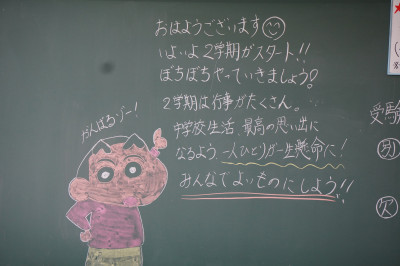 おはようございます
いよいよ2学期がスタート!!
ぼちぼちやっていきましょう!
2学期は行事がたくさん。
中学校生活、最高の思い出に
なるよう、一人ひとりが一生懸命に!
みんなでよいものにしよう!!
がんばるゾー!
受験
別
欠